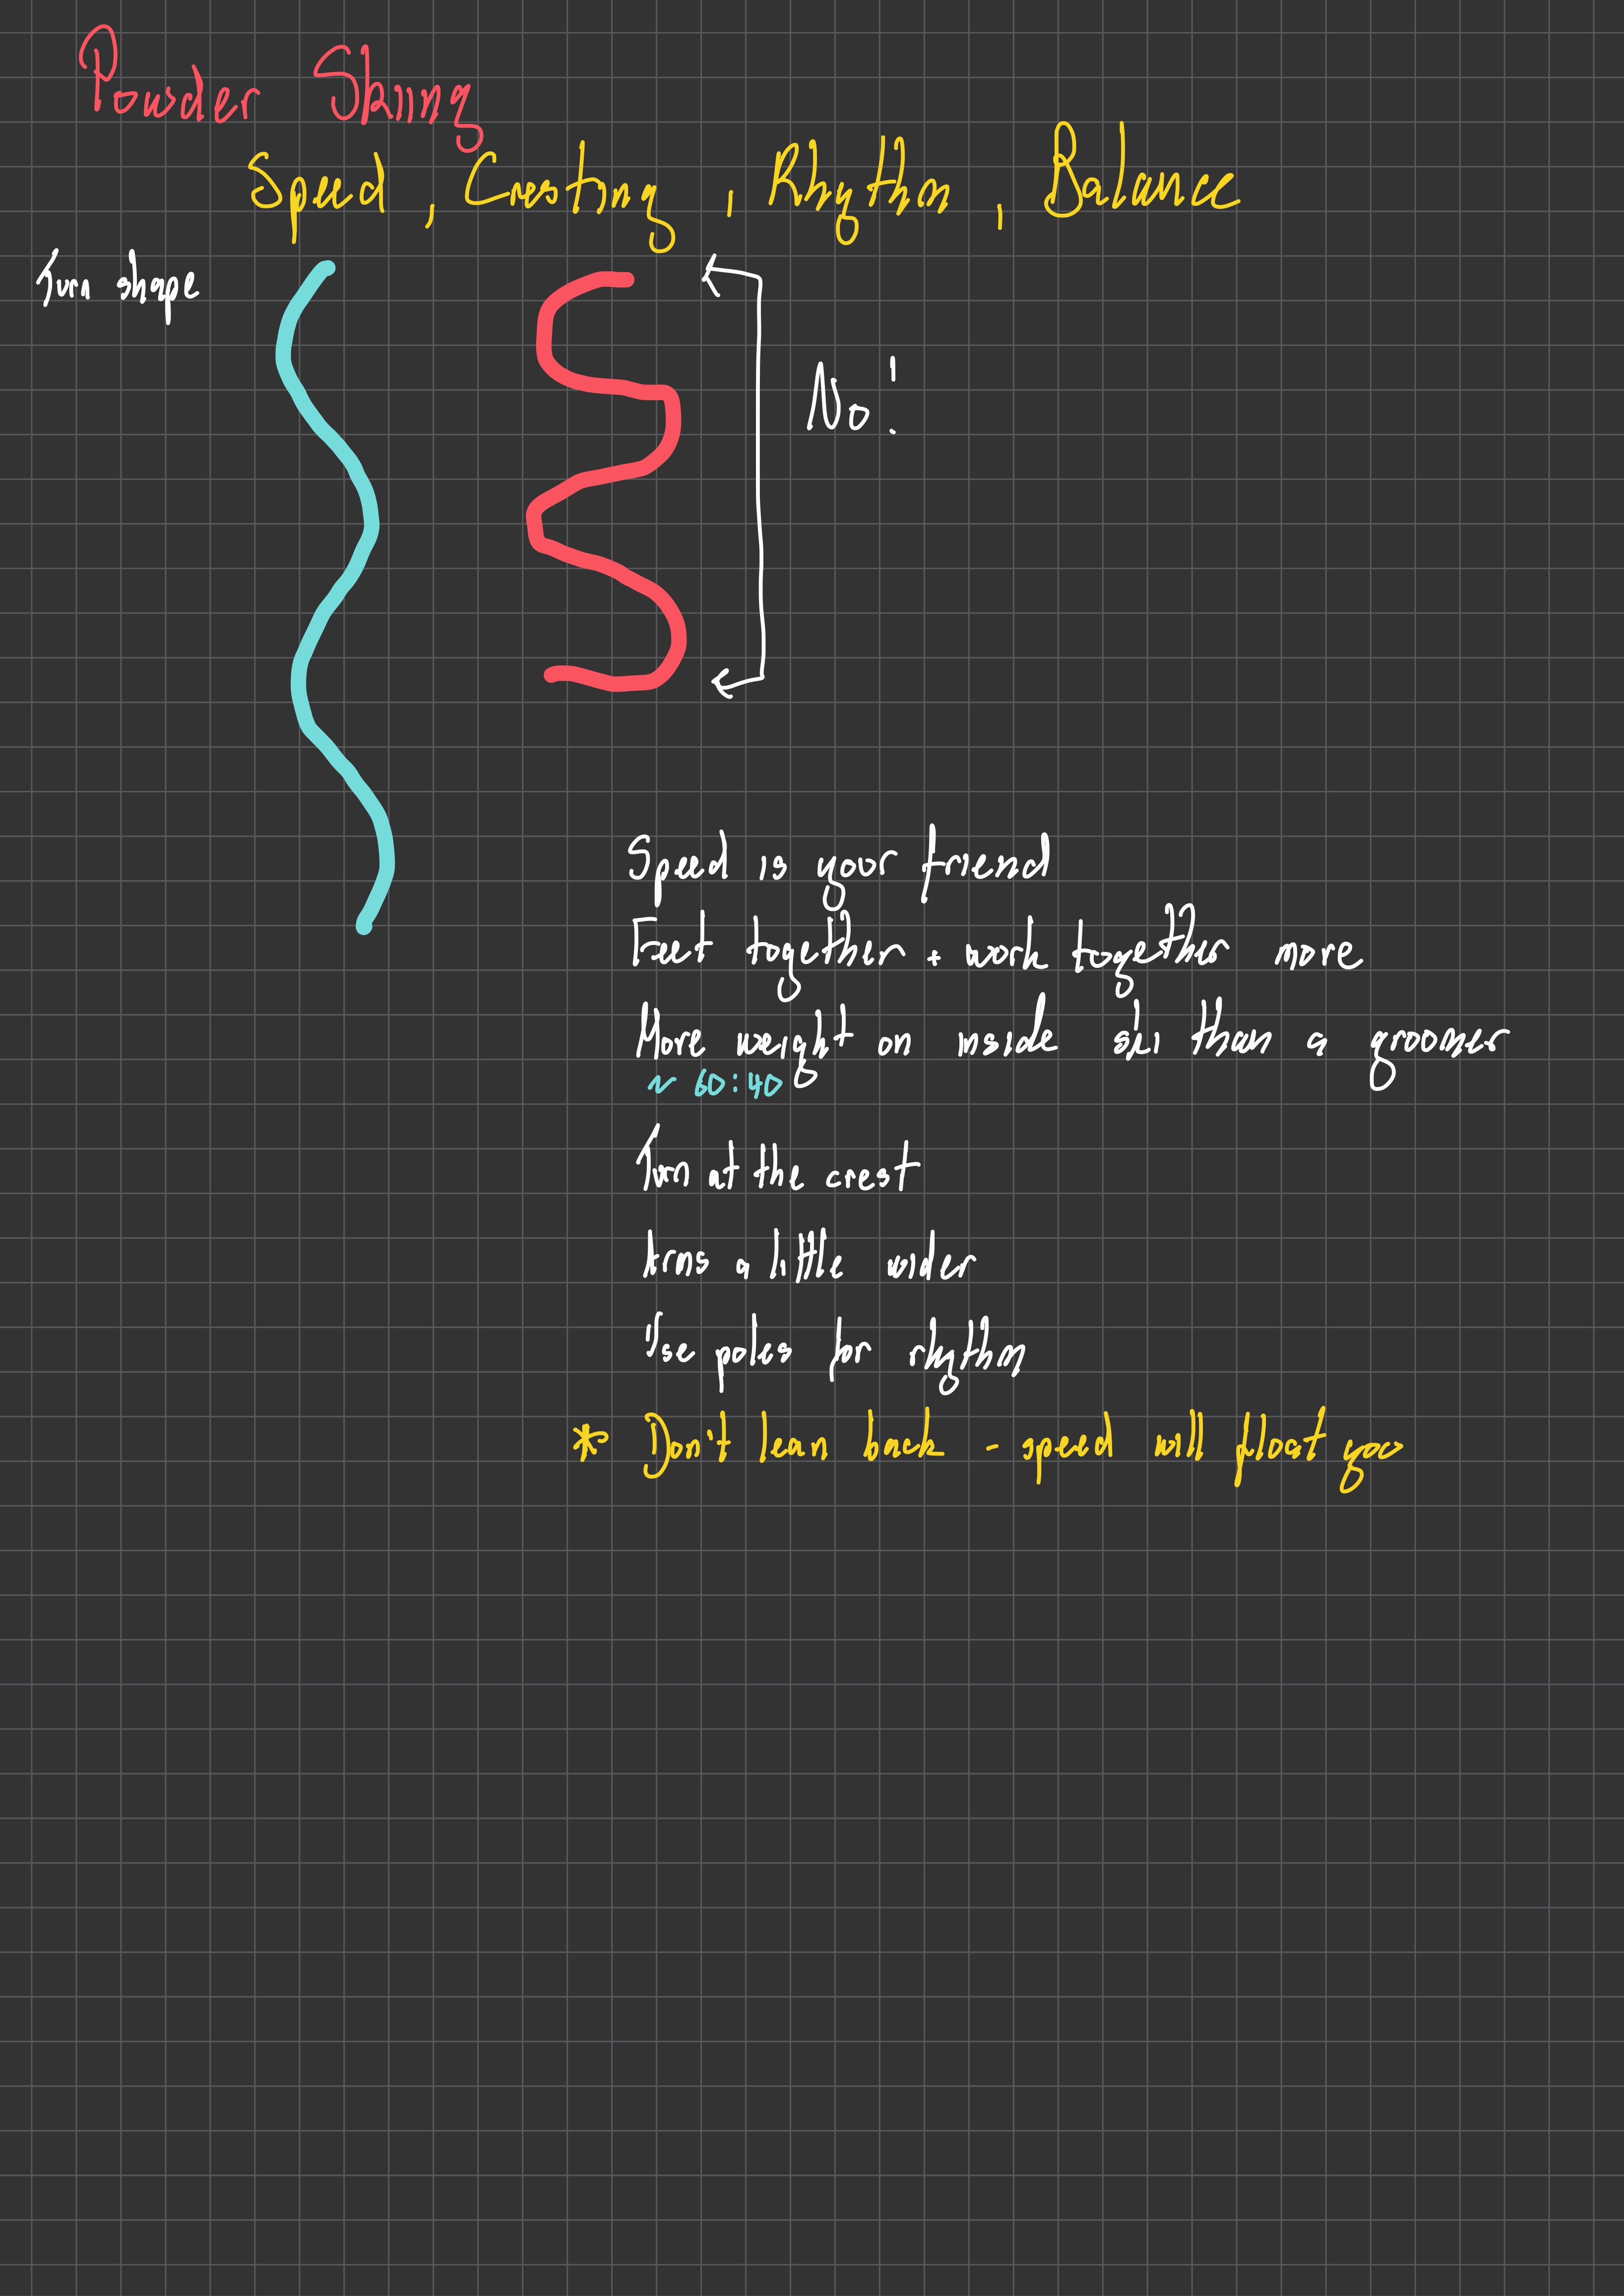 Powder Skiing
Speed, Cresting, Rhythm, Balance
Turn shape
No!
Speed is your friend
Feet together + work together more
More weight on inside ski than a groomer
~ 60:40
Turn at the crest
Arms a little wider
Use poles for rhythm
* Don't lean back - speed will float you